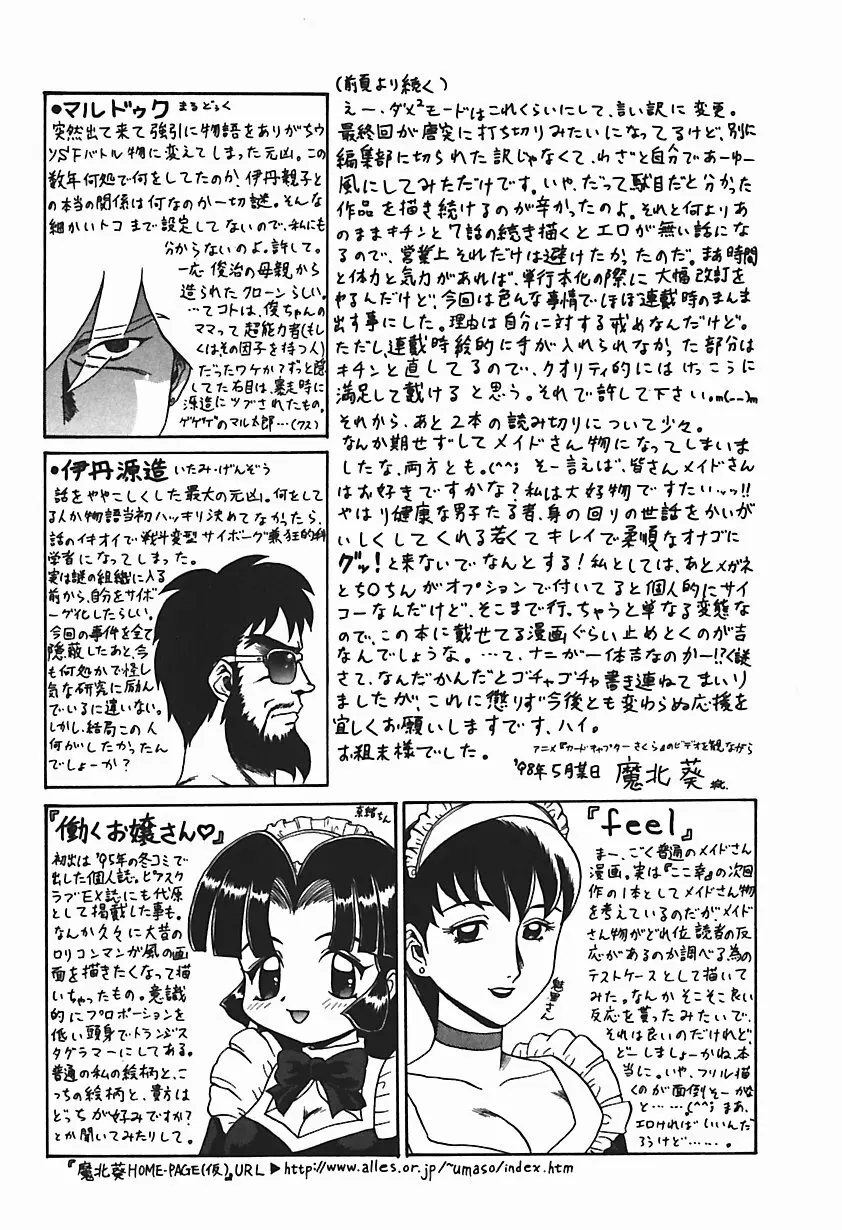 (前頁より続く)
えー、ダメ²モードはこれくらいにして、言い訳に変更。
最終回が唐突に打ち切りみたいになってるけど、別に
編集部に切られた訳じゃなくて、わざと自分であーゆー
風にしてみただけです。いや、だって駄目だと分かった
作品を描き続けるのが辛かったのよ。それと何よりあ
のままキチンと7話の続き描くとエロが無い話にな
るので、営業上それだけは避けたかったのだ。まあ時間
と体力と気力があれば、単行本化の際に大幅改訂を
やるんだけど、今回は色んな事情でほぼ連載時のまんま
出す事にした。理由は自分に対する戒めなんだけど。
ただし、連載時絵的に手が入れられなかった部分は
キチンと直してるので、クオリティ的にはけっこうに
満足して戴けると思う。それで許して下さい。m(__)m
それから、あと2本の読み切りについて少々。
なんか期せずしてメイドさん物になってしまいま
したな、両方とも。(^^; そー言えば、皆さんメイドさん
はお好きですかな?私は大好物ですたいッッ!!
やはり健康な男子たる者、身の回りの世話をかいが
いしくしてくれる若くてキレイで柔順なオナゴに
グッ!と来ないでなんとする!私としては、あとメガネ
とち○ちんがオプションで付いてると個人的にサイ
コーなんだけど、そこまで行っちゃうと単なる変態な
ので、この本に載せてる漫画ぐらい止めとくのが吉
なんでしょうな。…て、ナニが一体吉なのかー!?く謎
さて、なんだかんだとゴチャゴチャ書き連ねてまいり
ましたが、これに懲りず今後とも変わらぬ応援を
宜しくお願いしますです、ハイ。
お粗末様でした。
アニメ『カードキャプターさくら』のビデオを観ながら
'98年5月某日 魔北葵
●マルドゥク まるどぅく
突然出て来て強引に物語をありがちウ
ソSFバトル物に変えてしまった元凶。この
数年何処で何をしてたのか、伊丹親子と
の本当の関係は何なのか一切謎。そんな
細かいトコまで設定してないので、私にも
分からないのよ。許して。
一応俊治の母親から
造られたクローンらしい。
…てコトは、俊ちゃんの
ママって超能力者(もし
くはその因子を持つ人)
だったワケか?ずっと隠
してた右目は、暴走時に
源造にツブされたもの。
ゲゲゲのマル太郎…(クス)
●伊丹源造 いたみ・げんぞう
話をややこしくした最大の元凶。何をして
る人か物語当初ハッキリ決めてなかったら、
話のイキオイで戦斗変型サイボーグ兼狂的科
学者になってしまった。
実は謎の組織に入る
前から、自分をサイボ
ーグ化したらしい。
今回の事件を全て
隠蔽したあと、今
も何処かで怪し
気な研究に励ん
でいるに違いない。
しかし、結局この人
何がしたかったん
でしょーか?
『働くお嬢さん♡』
奈緒ちん
初出は'95年の冬コミで
出した個人誌。ピアスク
ラブEX誌にも代原
として掲載した事も。
なんか久々に大昔の
ロリコンマンガ風の画
面を描きたくなって描
いちゃったもの。意識
的にプロポーションを
低い頭身でトランジス
タグラマーにしてある。
普通の私の絵柄と、こ
っちの絵柄と、貴方は
どっちが好みですか?
とか聞いてみたりして。
『feel』
まー、ごく普通のメイドさん
漫画。実は『ここ幸』の次回
作の1本としてメイドさん物
を考えているのだが、メイド
さん物がどれ位読者の反
応があるのか調べる為の
テストケースとして描いて
みた。なんかそこそこ良い
反応を貰ったみたいで、
それは良いのだけれど、
どーしましょーかね、本
当に。いや、フリル描
くのが面倒そーかな
と……(^^; まあ、
エロければいいんだ
ろうけど……。
魅里さん
『魔北葵HOME-PAGE(仮)』URL▶http://www.alles.or.jp/~umaso/index.htm